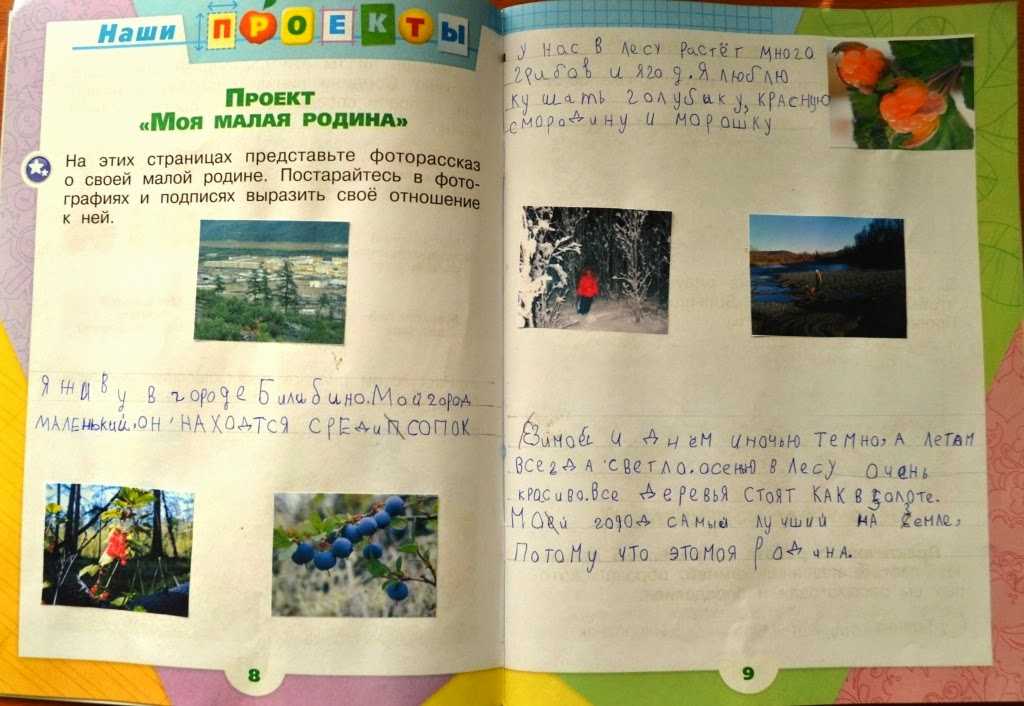 Наши ПРОЕКТЫ
ПРОЕКТ
«МОЯ МАЛАЯ РОДИНА»
На этих страницах представьте фоторассказ
о своей малой родине. Постарайтесь в фото-
графиях и подписях выразить своё отношение
к ней.
Я живу в городе Билибино. Мой город
МАЛЕНЬКИЙ. ОН НАХОДТСЯ СРЕДИ СОПОК
8
У нас в лесу растёт много
грибов и ягод. Я люблю
кушать голубику, красную
смородину и морошку
Зимой и днём и ночью темно, а летам
всегда светло. осенью в лесу очень
красиво. все деревья стоят как в золоте.
Мой город самый лучший на земле,
Потому что это моя родина.
9